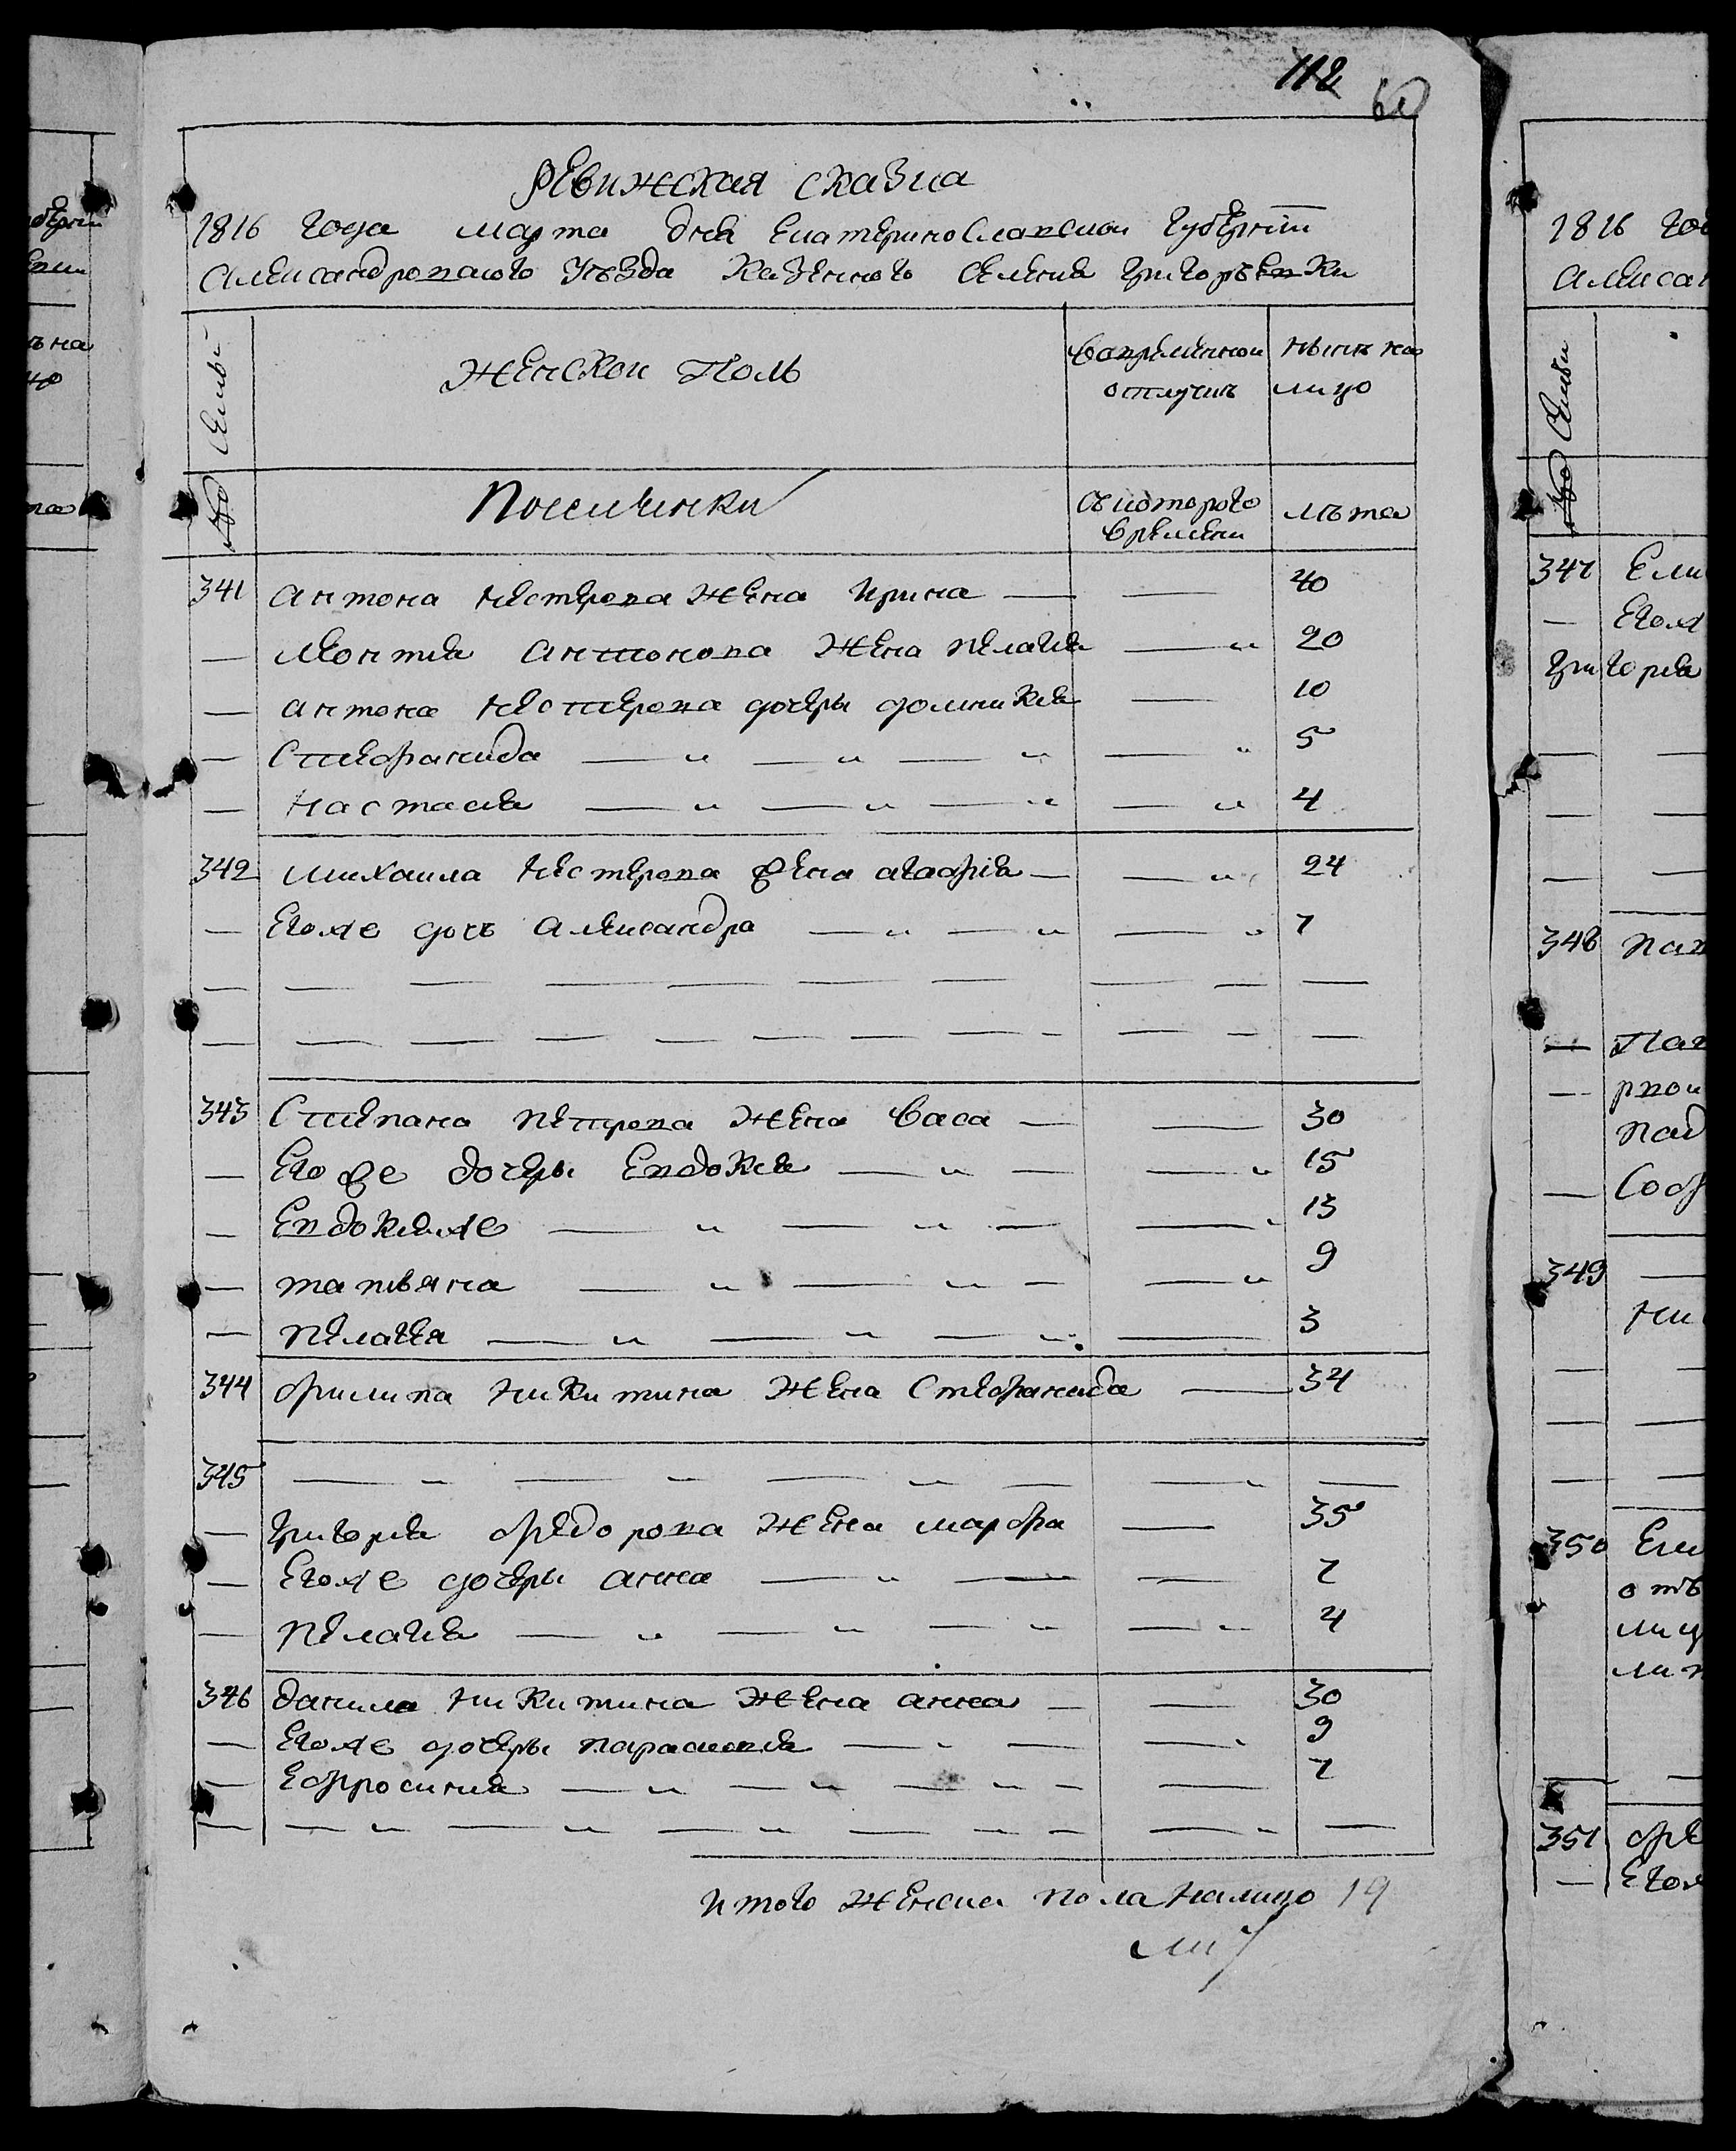 112
60
Ревижская сказка
1816 года марта дня Екатеринославской Губернїи
Александровского Уѣзда Казенного Селения Григорьевки
№ Семьи
Женской Полъ
Вовременной отлучкѣ
Нынѣ на лицо
Поселянки
Съ которого времени
лѣта
341 Антона Нестерова Жена Ирина — — 40
— Леонтия Антонова Жена Пелагия — 20
— Антона Нестерова дочеры Домникия — 10
— Стефанида — — — 5
— Настасия — — — 4
342 Михаила Нестерова жена Агафия — — 24
— Егоже дочь Александра — — — 7
343 Степана Петрова Жена Васа — — 30
— Его же дочеры Евдокия — — — 15
— Евдокияже — — — 13
— татьяна — — — 9
— Пелагея — — — 3
344 Филипа Никитина Жена Стефанида — 34
345 — — — —
— Григория Федорова Жена Марфа — 35
— Егоже дочеры Анна — — — 7
— Пелагия — — — 4
346 Данила Никитина Жена Анна — — 30
— Егоже дочеры Парасковия — — — 9
— Ефросиния — — — 7
Итого Женска пола Налицо 19
1816
347
—
Григория
348
—
—
349
350
351
—